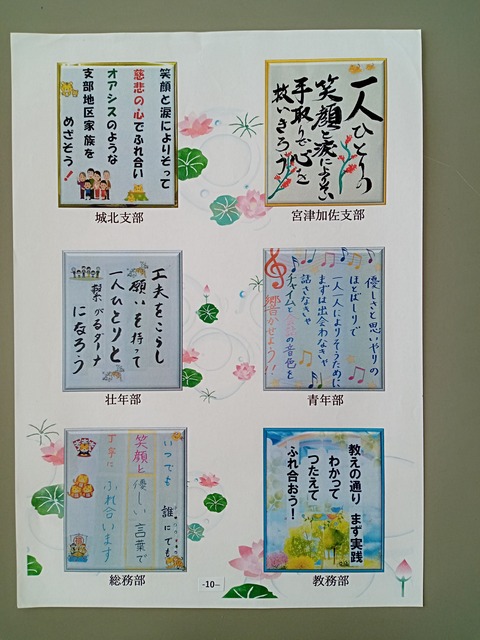 笑顔と涙によりそって
慈悲の心でふれ合い
オアシスのような
支部地区家族を
めざそう!
城北支部
一人ひとりの
笑顔と涙によりそい
手取りて心を
救いきろう
宮津加佐支部
工夫をこらし
願いを持って
一人ひとりと
繋がるダーナ
になろう
壮年部
優しさと思いやりの
ほとばしりで
一人一人によりそうために
まずは出会わなきゃ
話さなきゃ
チャイムと の音色を
響かせよう!!
青年部
いつでも 誰にでも
笑顔と優しい言葉で
丁寧に ふれ合います
総務部
教えの通り まず実践
わかって
つたえて
ふれ合おう!
教務部
-10-